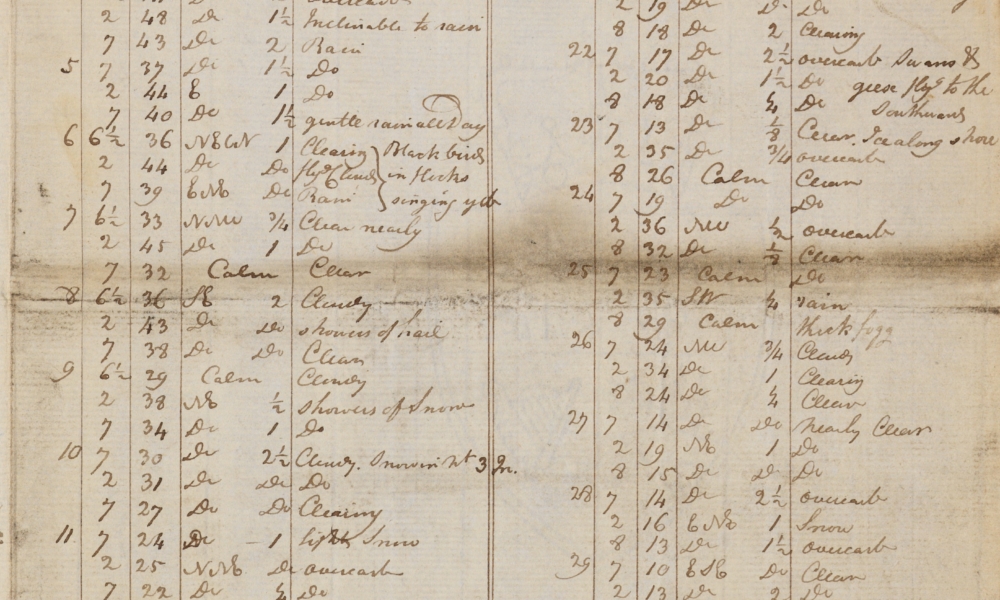 2 48 Do 1½ Inclinable to rain
7 43 Do 2 Rain
5 7 37 Do 1½ Do
2 44 E 1 Do
7 40 Do 1½ gentle rain all Day
6 6½ 36 NEbN 1 Clearing Black birds
2 44 Do Do flyg Clouds in flocks
7 39 ENE Do Rain singing
7 6½ 33 NNW ¾ Clear nearly
2 45 Do 1 Do
7 32 Calm Clear
8 6½ 36 SE 2 Cloudy
2 43 Do Do showers of hail
7 38 Do Do Clear
9 6½ 29 Calm Cloudy
2 38 NE ½ showers of Snow
7 34 Do 1 Do
10 7 30 Do 2½ Cloudy. Snow in Nt 3 In.
2 31 Do Do Do
7 27 Do Do Clearing
11 7 24 Do 1 light Snow
2 25 NNE Do overcast
7 22 Do ¼ Do
2 19 Do Do Do
8 18 Do 2 Clearing
22 7 17 Do 2½ overcast Swans &
2 20 Do 1½ Do geese flyg to the
8 18 Do ¼ Do Southward
23 7 13 Do ⅛ Clear. Ice along shore
2 35 Do ¾ overcast
8 26 Calm Clear
24 7 19 Do Do
2 36 NW ½ overcast
8 32 Do ⅛ Clear
25 7 23 Calm Do
2 35 SW ¼ rain
8 29 Calm thick fogg
26 7 24 NW ¾ Cloudy
2 34 Do 1 Clearing
8 24 Do ¼ Clear
27 7 14 Do Do nearly Clear
2 19 NE 1 Do
8 15 Do Do Do
28 7 14 Do 2½ overcast
2 16 ENE 1 Snow
8 13 Do 1½ overcast
29 7 10 ESE Do Clear
2 13 Do 2 Do